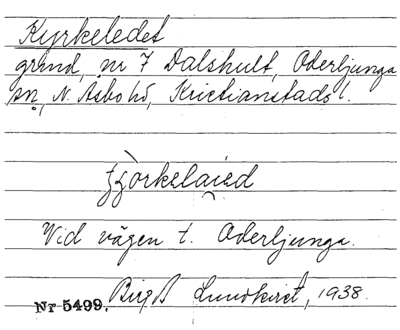 Kyrkeledet
grind, nr 7 Dalshult, Oderljunga
sn, N. Åsbo hd, Kristianstads l.
Vid vägen t. Oderljunga.
Nr 5499. Birgit Lundkvist, 1938.